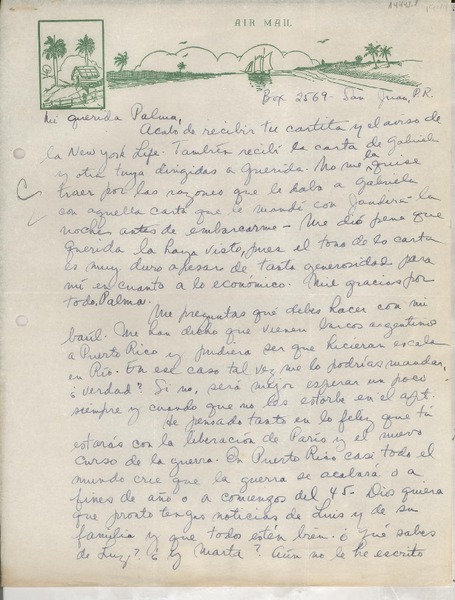 AIR MAIL
Box 2569 - San Juan, P.R.
Mi querida Palma,
Acabo de recibir tu cartita y el aviso de
la New York Life. También recibí la carta de Gabriela
y otra tuya dirigidas a Querida. No me la quise
traer por las razones que le dabo a Gabriela
con aquella carta que le mandé con Jandira la
noche antes de embarcarme - Me dió pena que
Querida la haya visto, pues el tono de la carta
es muy duro apesar de tanta generosidad para
mí en cuanto a lo económico. Mil gracias por
todo, Palma.
Me preguntas qué debes hacer con mi
baúl. Me han dicho que vienen barcos argentinos
a Puerto Rico y pudiera ser que hicieran escala
en Río. En ese caso tal vez me lo podrías mandar,
¿verdad? Si no, será mejor esperar un poco
siempre y cuando que no les estorbe en el apt.
He pensado tanto en lo feliz que tú
estarás con la liberación de París y el nuevo
curso de la guerra. En Puerto Rico casi todo el
mundo cree que la guerra se acabará o a
fines de año o a comienzos del 45 - Dios quiera
que pronto tengas noticias de Luis y de su
familia y que todos estén bien. ¿Qué sabes
de Luz? ¿y Marta? Aún no le he escrito